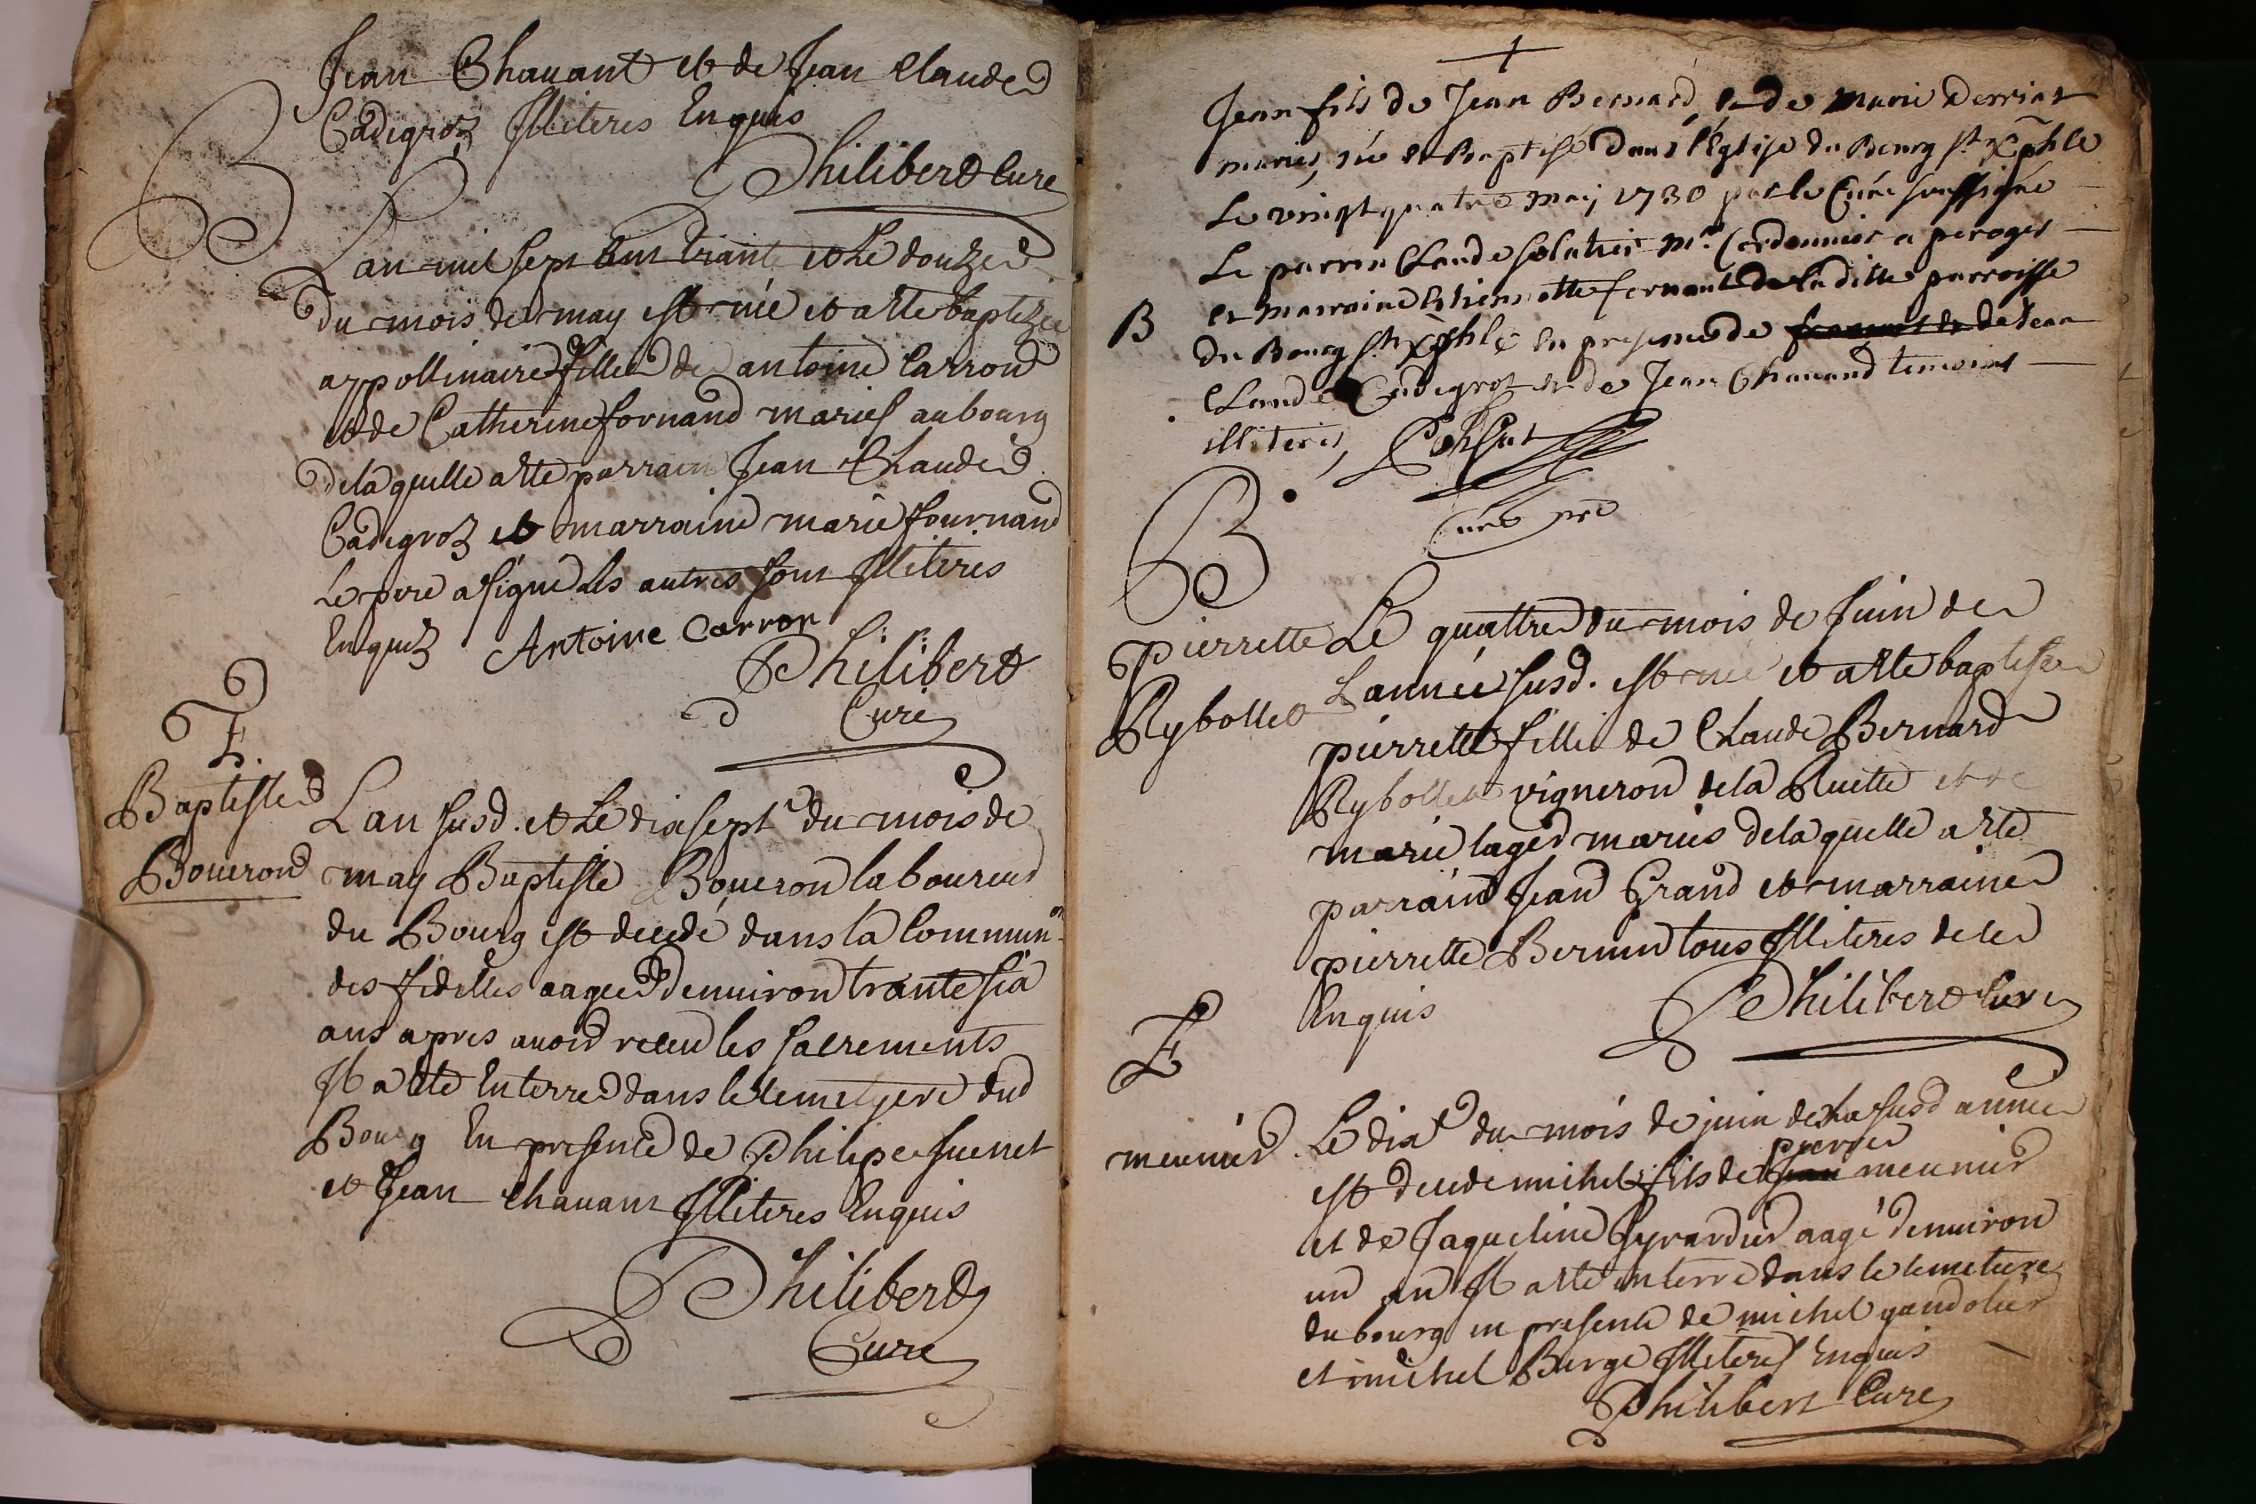 Jean Chauant et de Jean Claude
Cadegroz Illiteres Enquis
Philibert Cure
B
Lan mil sept cens trante et Le douze
du mois de may est née et a esté baptizée
appollinaire fille de antoine Carron
et de Catherine fornand mariés au bourg
de la quelle a esté parrain Jean Claude
Cadegroz et marraine marie fournand
Le pere a signé les autres sont Illiteres
Enquis Antoine Carron
Philibert
Curé
E.
Baptiste
Boueron
Lan susd. et Le dix sept.e du mois de
may Baptiste Boueron laboureur
du Bourg est decedé dans la Commun.on
des fidelles aagé denuiron trante six
ans apres auoir receu les sacrements
Il a esté Enterré dans le cemetyere dud
Bourg En presence de Philipe
et Jean chauant Illiteres Enquis
Philibert
Curé
Jean fils de Jean Bernard, et de marie Derriat
mariés, née et Baptisé dans l'Eglise du Bourg st. Xphle
Le vingt quatre may 1730 par le Curé soussigné
Le parrin Claude Mre Cordonnier a peroges
et marraine Estiennette fernant de la ditte parroisse
B
du Bourg st. Xphle En presence de de Jean
Claude Cadegrot et de Jean Chauand temoins
illiteris,
Curé
B
Pierrette
Rybollet
Le quattre du mois de Juin de
Lannée susd. est née et a esté baptisée
pierrette fille de Claude Bernard
Rybollet vigneron de la Ruette et de
marie lager mariés de la quelle a esté
parrain Jean Grand et marraine
pierrette Bernin tous Illiteres de ce
Enquis
Philibert Curé
E
meunier
Le dix.e du mois de juin de La susd année
est decedé michel fils de pierre meunier
et de Jaqueline Gyrardier aagé denuiron
un an Il a esté enterré dans le cemetiere
du bourg en presence de michel gandolier
et michel Burge Illiteres Enquis
Philibert Curé